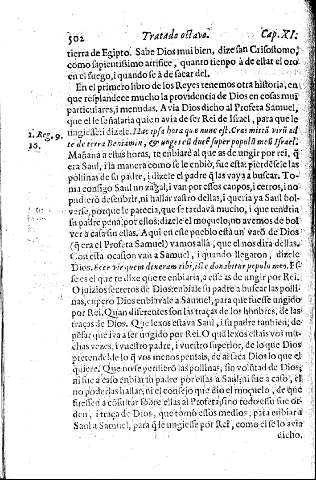 502 Tratado octavo. Cap. XI.
tierra de Egipto. Sabe Dios mui bien, dize san Crisostomo,
como sapientissimo artifice, quanto tienpo à de estar el oro
en el fuego, i quando se à de sacar del.
En el primero libro de los Reyes tenemos otra historia, en
que resplandece mucho la providencia de Dios en cosas mui
particulares, i menudas. Avia Dios dicho al Profeta Samuel,
que el le señalaria quien avia de ser Rei de Israel, para que le
1. Reg. 9. ungiesse: i dizele. Hac ipsa hora quæ nunc est. Cras mittã virũ ad
16. te de terra Beniamin, & unges eũ ducẽ super populũ meũ Israel.
Mañana a estas horas, te enbiarè al que as de ungir por rei, q̃
era Saul, i la manera como se le enbiò, fue esta: pierdense le las
pollinas de su padre, i dizele el padre q̃ las vaya a buscar. To-
ma consigo Saul un zagal, i van por essos canpos, i cerros, i no
pudierõ descubrir, ni hallar rastro dellas, i queria ya Saul bol-
verse, porque le parecia, que se tardavã mucho, i que tendria
su padre pena, por ellos: dizele el moçuelo, no avemos de bol
ver a casa sin ellas. Aqui en este pueblo està un varõ de Dios
(q̃ era el Profeta Samuel) vamos allà, que el nos dirà dellas.
Con esta ocasion van a Samuel, i quando llegaron, dizele
Dios. Ecce vir quem dixeram tibi, iste dominabitur populo meo. Es-
se es el que te dixe que te enbiaria, para que as de ungir por Rei.
O juizios secretos de Dios: enbiale su padre a buscar las polli-
nas, enpero Dios enbiavale a Samuel, para que fuesse ungido
por Rei. Quan diferentes son las traças de los hõnbres, de las
traças de Dios. Que lexos estava Saul, i su padre tanbien, de
pẽsar que iva a ser ungido por Rei. O quã lexos estais vos mu-
chas vezes, i vuestro padre, i vuestro superior, de lo que Dios
pretende: de lo q̃ vos menos pensais, de ai saca Dios lo que el
quiere. Que no se perdierõ las pollinas, sin volũtad de Dios;
ni fue a caso enbiar su padre por ellas a Saul; ni fue a caso, el
no poderlas hallar; ni el consejo que dio el moçuelo, de que
fuessen a cõsultar sobre ellas al Profeta, sino todo esso fue or
den, i traça de Dios, que tomò essos medios, para enbiar a
Saul a Samuel, para q̃ le ungiesse por Rei, como el se lo avia
dicho.